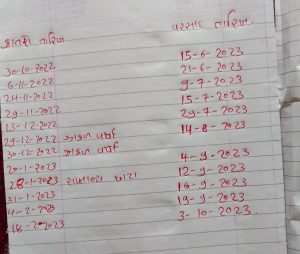 કાતરા તારીખ વરસાદ તારીખ
30-10-2022 15-6-2023
6-11-2022 21-6-2023
24-11-2022 9-7-2023
29-11-2022 15-7-2023
13-12-2022 29-7-2023
29-12-2022 ઝાકળ વર્ષા 14-8-2023
30-12-2022 ઝાકળ વર્ષા
20-1-2023 4-9-2023
28-1-2023 છાંટા 12-9-2023
31-1-2023 16-9-2023
4-2-2023 19-9-2023
3-10-2023